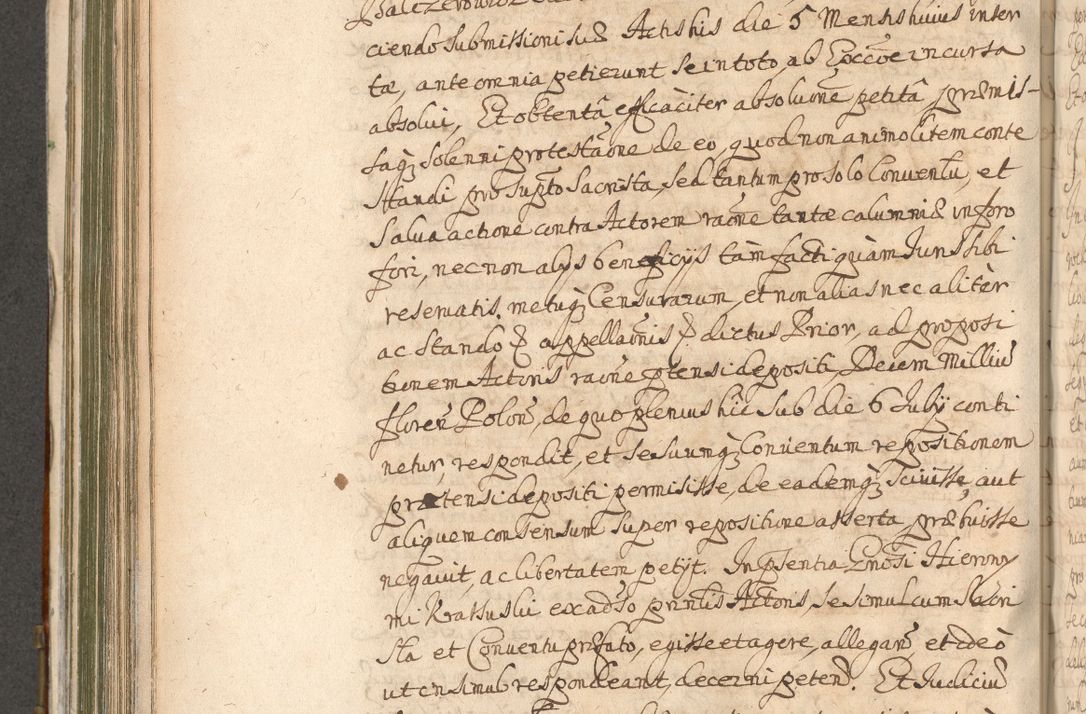 ciendo submissioni suæ Actis his die 5 Mensis huius inser
tæ, ante omnia petierunt se in toto ab Excõe incursa
absolui, Et obtentâ efficaciter absoluõne petitâ præmis-
saq₃ solenni protestãone de eo, quod non animo litem conte
standi pro supto Sacrista, sed tantum pro solo Conuentu, et
salua actione contra Actorem raõne tantæ calumniæ in foro
fori, nec non alijs beneficijs tàm facti quàm Juris sibi
reseruatis, metuq₃ Censurarum, et non alias nec alitèr
ac stando
appellaõnis
dictus Prior, ad proposi
tionem Actoris raõne ptensi depositi Decem Milliũ
floreñ Poloñ, de quo plenius hîc sub die 6 Julij conti
netur, respondit, et se suumq₃ Conuentum repositionem
prætensi depositi permisisse, de eademq₃ sciuisse, aut
aliquem consensum super repositione asserta præbuisse
negauit, ac libertatem petijt. In pñsentia Gnosi Hierony
mi Kratsuski ex aduso pñtis Actoris, se simul cum Sacri
sta et Conuentu præfato, egisse et agere, allegañ et ideò
ut ensimul respondeant, decerni peteñ. Et Judiciũ